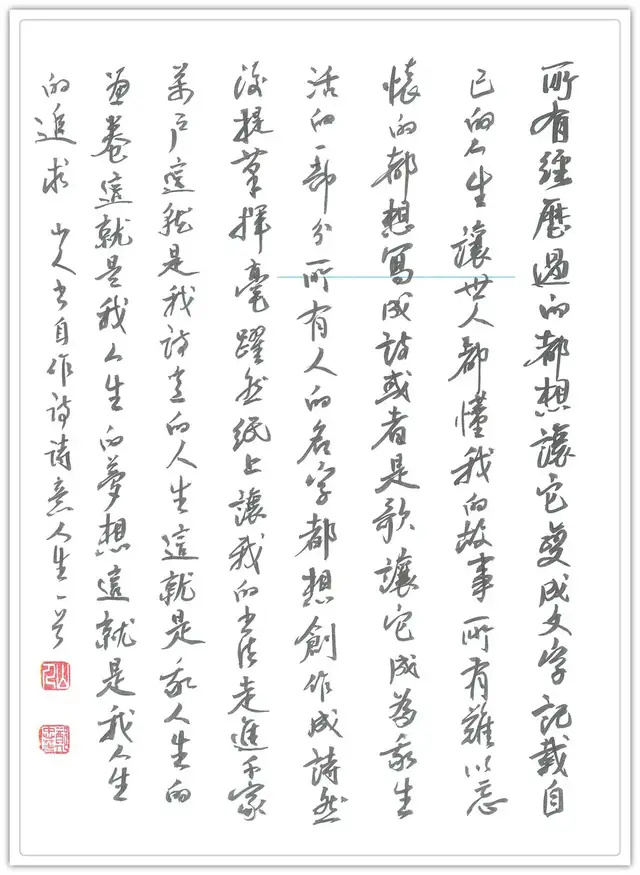 所有經歷過的都想讓它變成文字記載自
己的人生讓世人都懂我的故事所有難以忘
懷的都想寫成詩或者是歌讓它成為我生
活的一部分所有人的名字都想創作成詩然
後提筆揮毫躍然紙上讓我的書法走進千家
萬戶這就是我詩意的人生這就是我人生的
畫卷這就是我人生的夢想這就是我人生
的追求 山人書自作詩詩意人生一首
山人